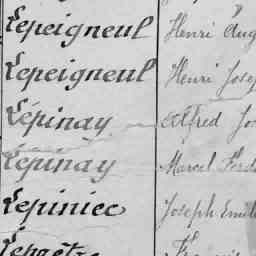 Lepeigneul Henri Aug
Lepeigneul Henri Josep
Lépinay Alfred Jos
Lépinay Marcel Ferd
Lepiniec Joseph Emile